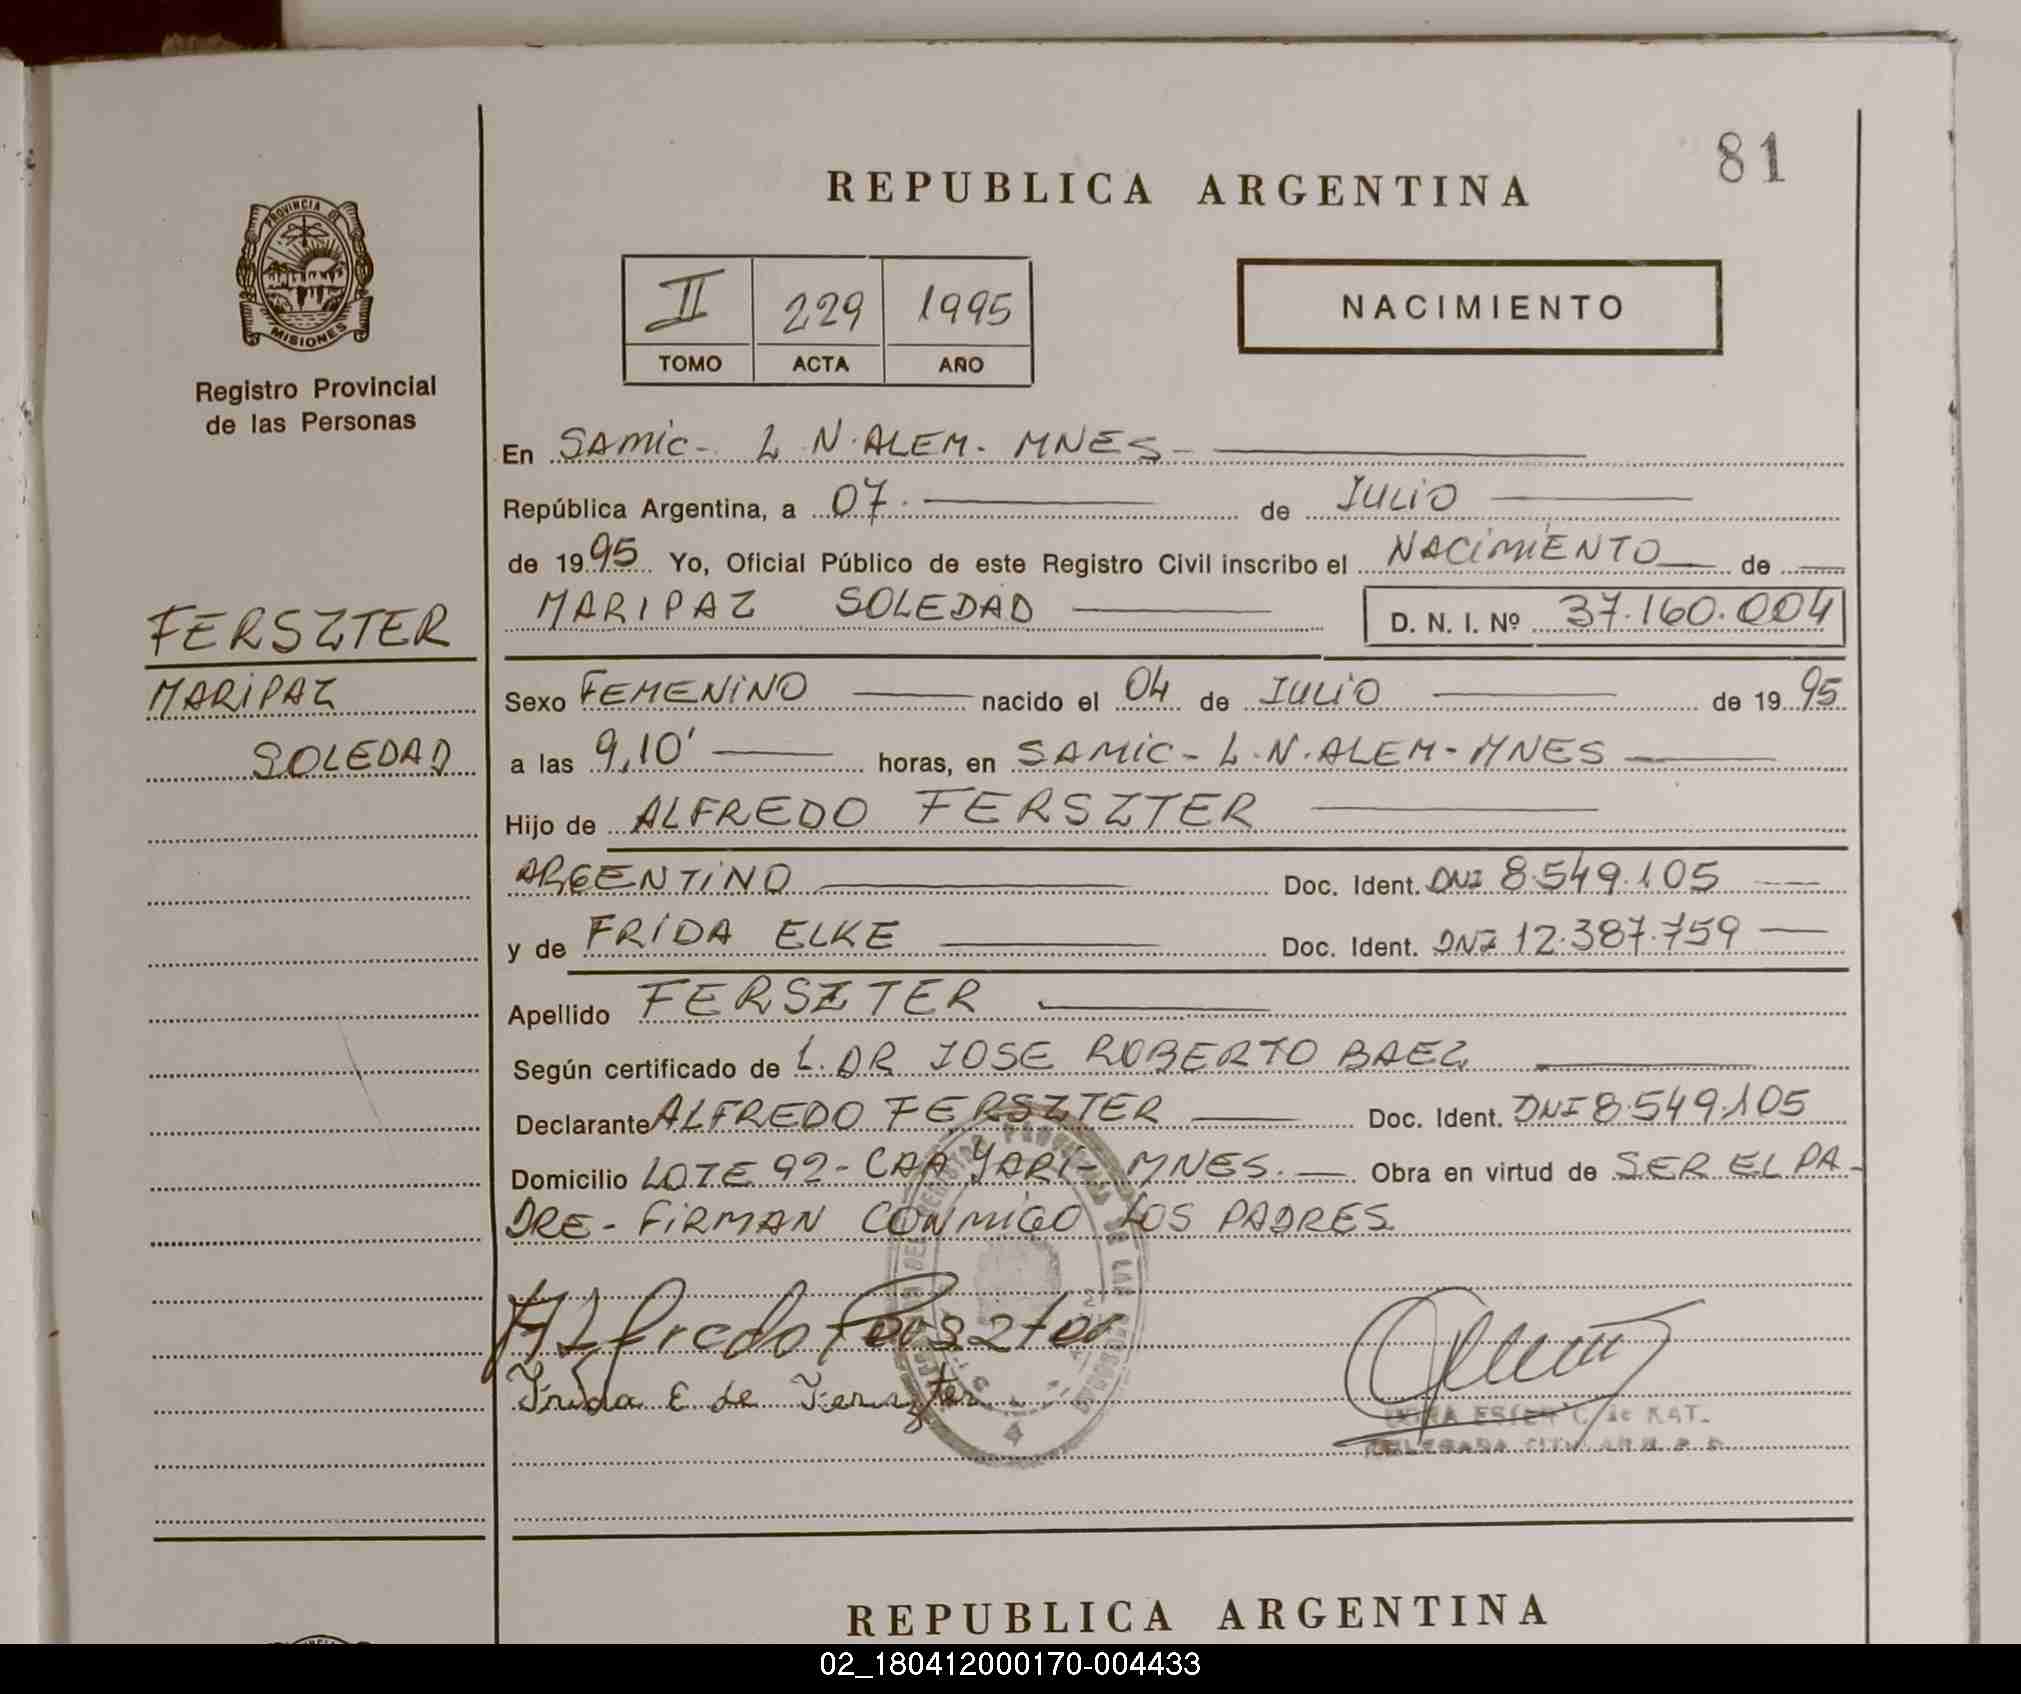 81
REPUBLICA ARGENTINA
PROVINCIA DE
MISIONES
Registro Provincial
de las Personas
II 229 1995
TOMO ACTA AÑO
NACIMIENTO
En SAMIC - L N. ALEM. MNES -
República Argentina, a 07. de JULIO
de 1995 Yo, Oficial Público de este Registro Civil inscribo el NACIMIENTO de
MARIPAZ SOLEDAD D. N. I. Nº 37.160.004
FERSZTER
MARIPAZ
SOLEDAD
Sexo FEMENINO nacido el 04 de JULIO de 1995
a las 9,10' horas, en SAMIC - L.N. ALEM - MNES
Hijo de ALFREDO FERSZTER
ARGENTINO Doc. Ident. DNI 8.549.105
y de FRIDA ELKE Doc. Ident. DNI 12.387.759
Apellido FERSZTER
Según certificado de L. DR JOSE ROBERTO BAEZ
Declarante ALFREDO FERSZTER Doc. Ident. DNI 8.549.105
Domicilio LOTE 92 - CAA YARI - MNES. Obra en virtud de SER EL PA-
DRE - FIRMAN CONMIGO LOS PADRES
Alfredo Ferszter
Frida E de Ferszter
REPUBLICA ARGENTINA
02_180412000170-004433